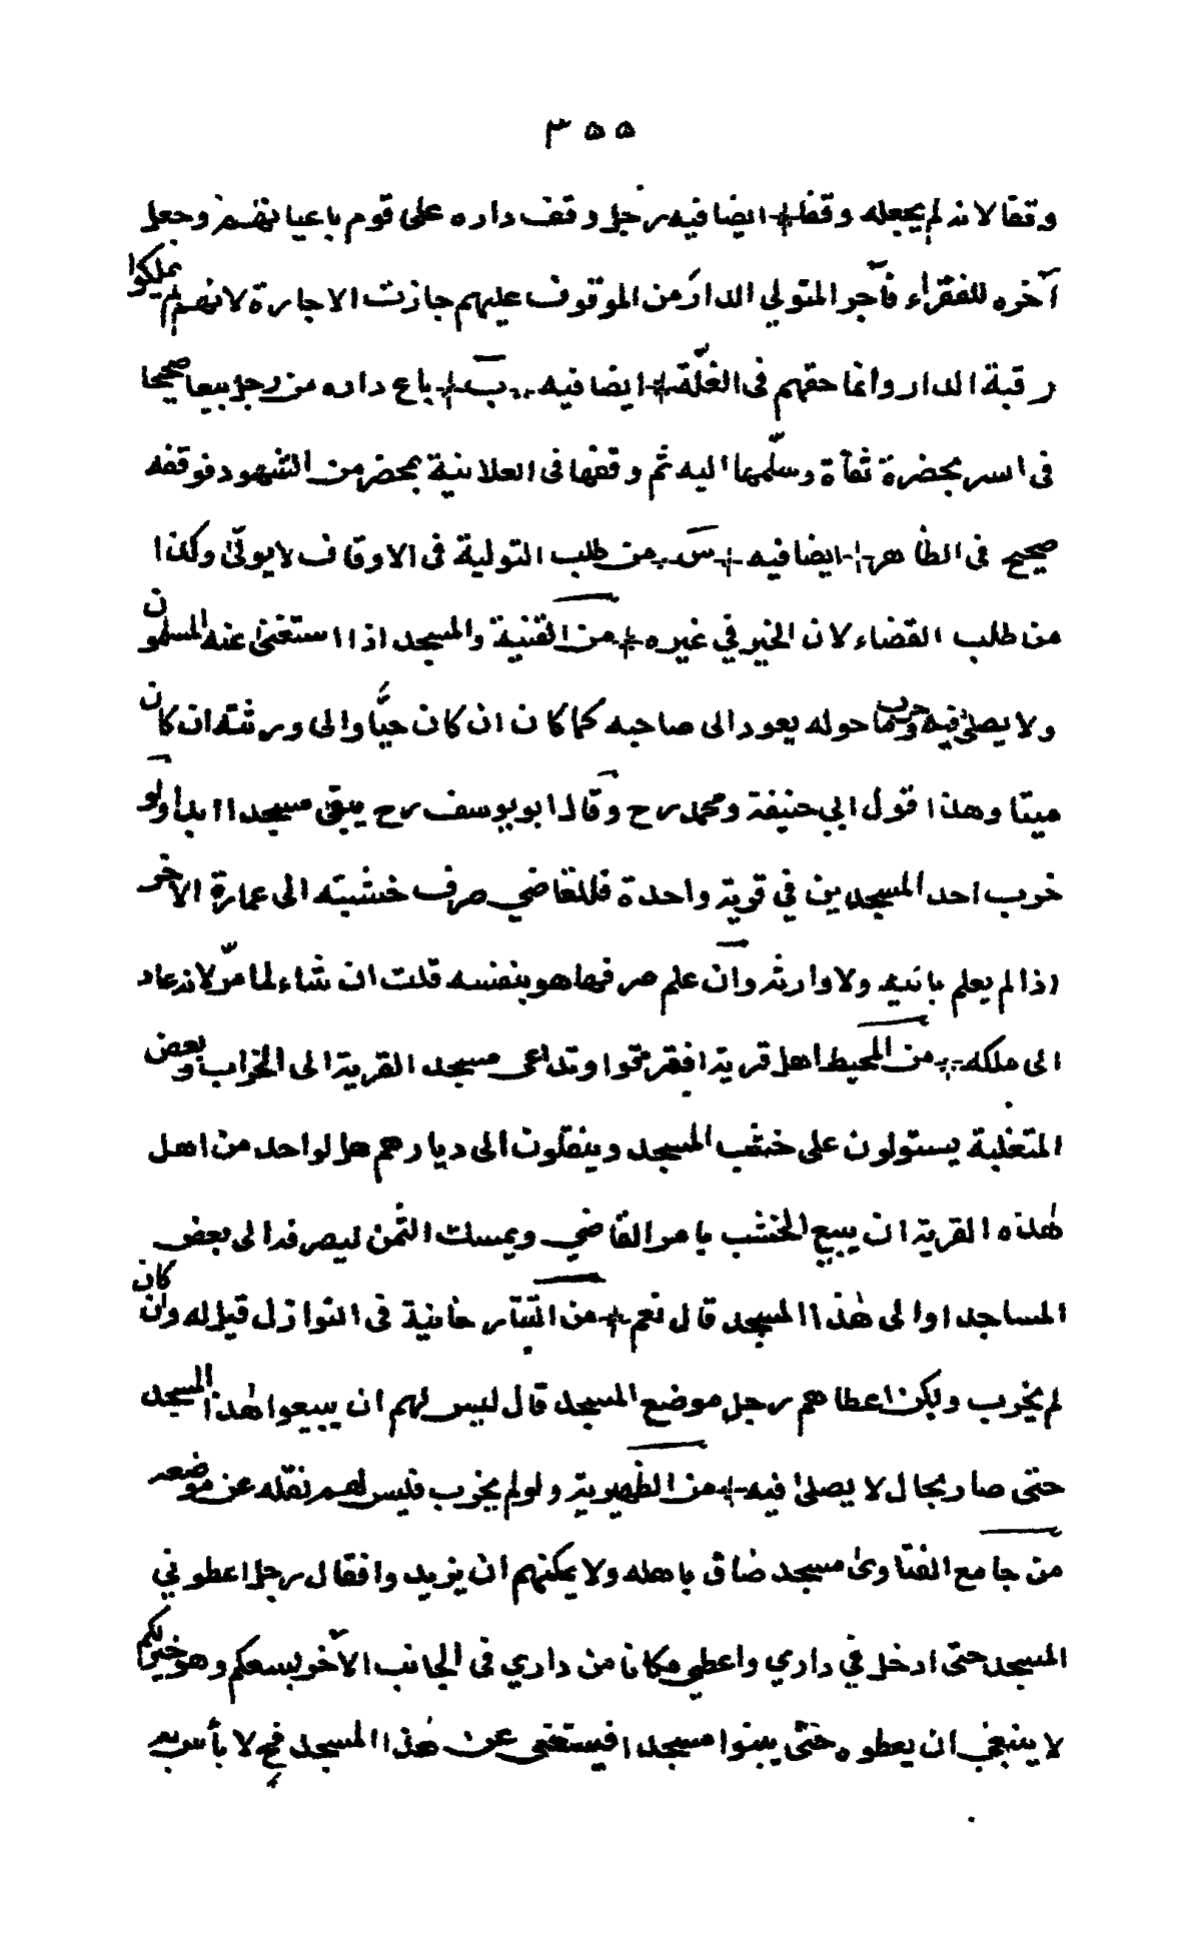 ٣٥٥
وقفا لانه لم يجعله وقفا + ايضا فيه رجل وقف داره على قوم باعيانهم وجعل
آخره للفقراء فآجر المتولي الدار من الموقوف عليهم جازت الاجارة لانهم لم يملكوا
رقبة الدار وانما حقهم فى الغلّة + ايضا فيه .. ب + باع داره من رجل بيعا صحيحا
فى السر بحضرة ثقاة وسلّمها اليه ثم وقفها فى العلانية بمحضر من الشهود فوقفه
صحيح فى الظاهر + ايضا فيه + س + من طلب التولية فى الاوقاف لا يولّىٰ وكذا
من طلب القضاء لان الخير في غيره + من القنية والمسجد اذا استغنىٰ عنه المسلمون
ولا يصلىٰ فيه وخرب ما حوله يعود الى صاحبه كما كان ان كان حيًّا والى ورثته ان كان
ميتا وهذا قول ابي حنيفة ومحمد رح وقال ابويوسف رح يبقى مسجدا ابدا ولو
خرب احد المسجدين في قرية واحدة فللقاضي صرف خشبته الى عمارة الآخر
اذا لم يعلم بانيه ولا وارثه وان علم صرفها هو بنفسه قلت ان شاء لما مرّ لانه عاد
الى ملكه + من المحيط اهل قرية افترقوا وتداعى مسجد القرية الى الخراب وبعض
المتغلبة يستولون على خشب المسجد وينقلون الى ديارهم هل لواحد من اهل
هٰذه القرية ان يبيع الخشب بامر القاضي ويمسك الثمن ليصرفه الى بعض
المساجد اوالى هٰذا المسجد قال نعم + من التتار خانية فى النوازل قيل له وان كان
لم يخرب ولكن اعطاهم رجل موضع المسجد قال ليس لهم ان يبيعوا هٰذا المسجد
حتى صار بحال لا يصلىٰ فيه + من الظهيرية ولو لم يخرب فليس لهم نقله عن موضعه
من جامع الفتاوىٰ مسجد ضاق باهله ولا يمكنهم ان يزيدوا فقال رجل اعطوني
المسجد حتى ادخل في داري واعطي مكانا من داري فى الجانب الآخر ليسعكم وهو خير لكم
لا ينبغي ان يعطوه حتى يبنوا مسجدا فيستغنى عن هٰذا المسجد فح لا بأس به